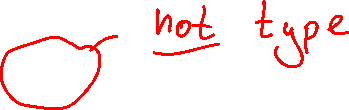 not type